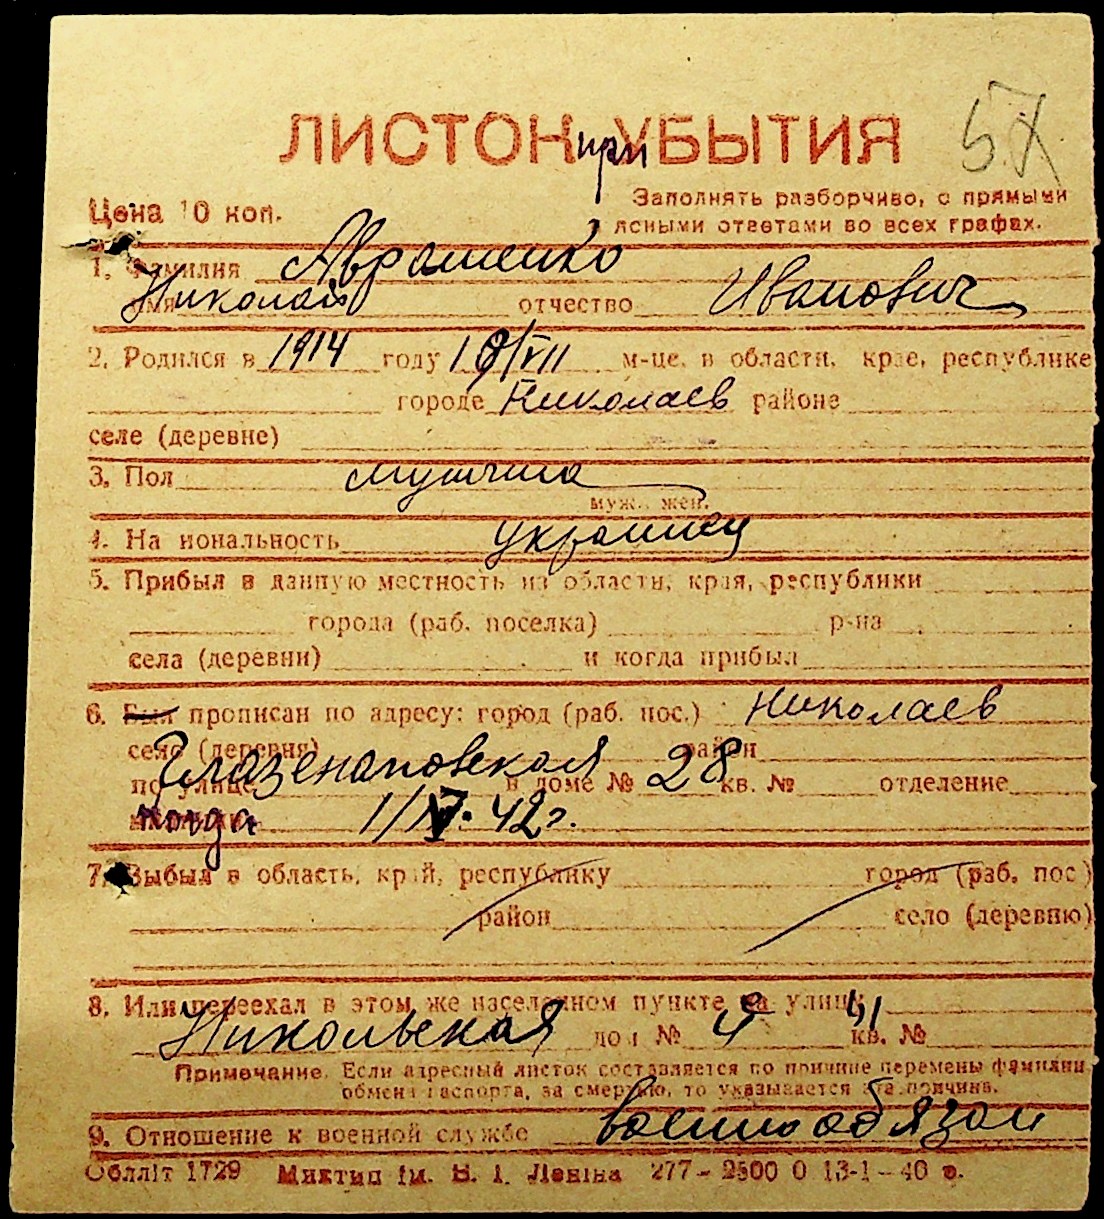 57
ЛИСТОК при УБЫТИЯ
Цена 10 коп.
Заполнять разборчиво, с прямыми
ясными ответами во всех графах.
1. Фамилия Аврашенко
имя Николай отчество Иванович
2. Родился в 1914 году 18/VII м-це, в области, крае, республике
городе Николаев районе
селе (деревне)
3. Пол мущина
муж., жен.
4. На иональность украинец
5. Прибыл в данную местность из области, края, республики
города (раб. поселка) р-на
села (деревни) и когда прибыл
6. Был прописан по адресу: город (раб. пос.) Николаев
село (деревня) район
по улице Глазенаповская в доме № 28 кв. № отделение
когда 1/IV. 42 г.
7. Выбыл в область, край, республику город (раб. пос)
район село (деревню)
8. Или переехал в этом же населенном пункте на улицы
Никольская дом № 4 кв. №
Примечание. Если адресный листок составляется по причине перемены фамилии,
обмена паспорта, за смертью, то указывается эта причина.
9. Отношение к военной службе военнообязан
Облліт 1729 Миктип ім. В. І. Леніна 277 - 2500 0 13-1-40 р.